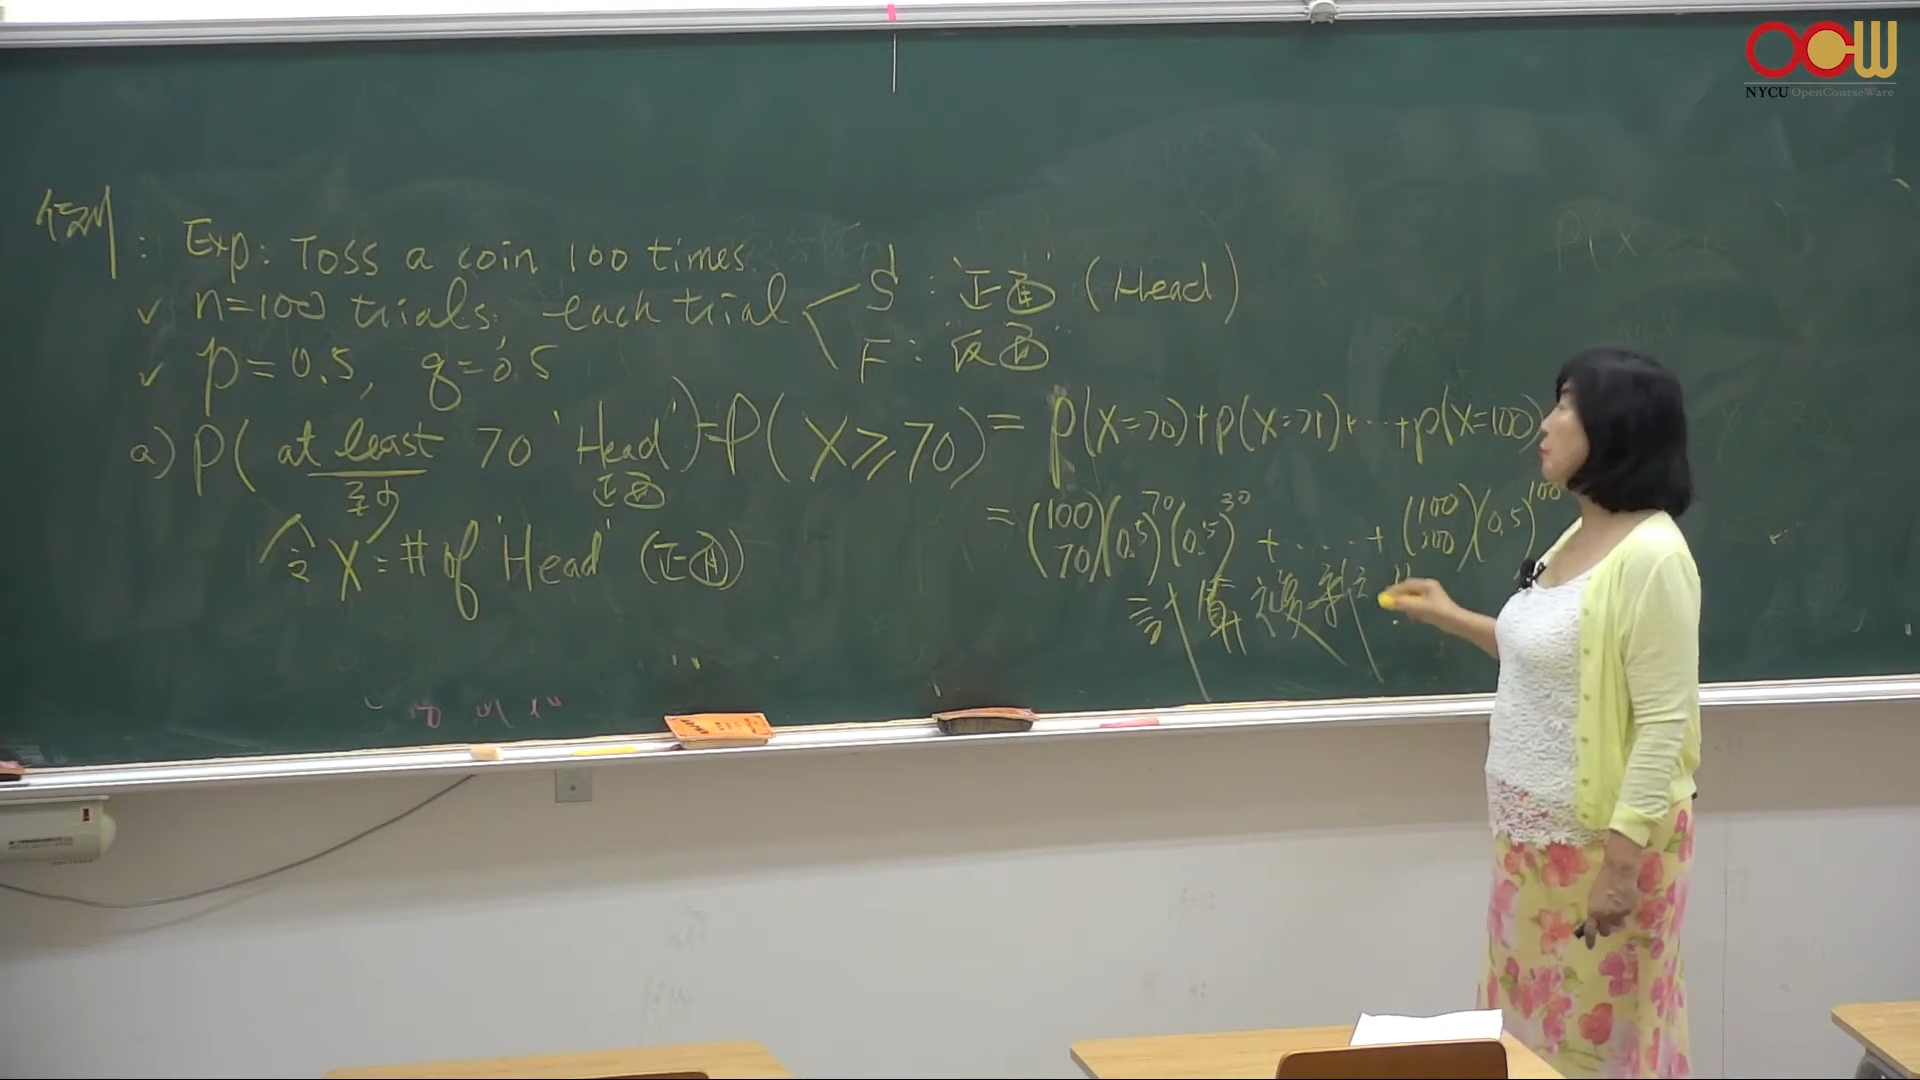 OCW
NYCU OpenCourseWare
例: Exp: Toss a coin 100 times.
✓ n=100 trials, each trial < S: "正面" (Head)
F: "反面"
✓ p=0.5, q=0.5
a) P( at least 70 'Head') = P( X ≥ 70) = P(X=70)+P(X=71)+...+P(X=100)
至少 正面
= (100 70)(0.5)^70(0.5)^30 + ..... + (100 100)(0.5)^100
令 X = # of 'Head' (正面)
計算複雜!!